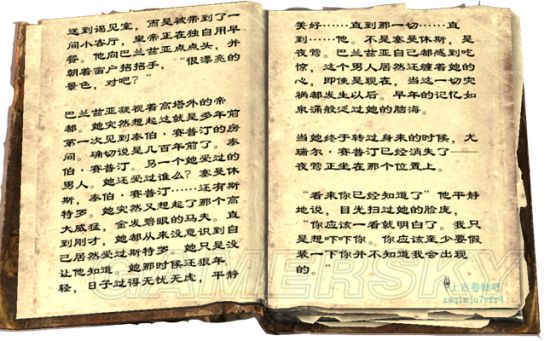 送到谒见室，而是被带到了一
间小客厅，皇帝正在独自用早
餐。他向巴兰兹亚点点头，并
朝着窗户招招手，“很漂亮的
景色，对吧？”
巴兰兹亚凝视着高塔外的帝
都。她突然想起这就是多年前
第一次见到泰伯·赛普汀的房
间。确切说是几百年前了。泰
伯·赛普汀。另一个她爱过的
男人。她还爱过谁么？塞曼休
斯，泰伯·赛普汀……还有斯
特罗。她突然又想起了那个高
大威猛，金发碧眼的马夫。直
到刚才，她都从来没意识到自
己居然爱过斯特罗。她只是没
让他知道。她那时候还很年
轻，日子过得无忧无虑，平静
美好……直到那一切……直
到……他。不是塞曼休斯，是
夜莺。巴兰兹亚自己都感到吃
惊，这个男人居然还缠着她的
心，即使是现在，当这一切灾
祸都发生以后。早年的记忆如
泉涌般泛过她的脑海。
当她终于转过身来的时候，尤
瑞尔·赛普汀已经消失了——
夜莺正坐在那个位置上。
“看来你已经知道了”他平静
地说，目光扫过她的脸庞，
“你应该一看就明白了。我只
是想吓吓你。你应该至少要假
装一下你并不知道我会出现
的。”
GAMERSKY
上古卷轴吧
zaq1mju7vfr4